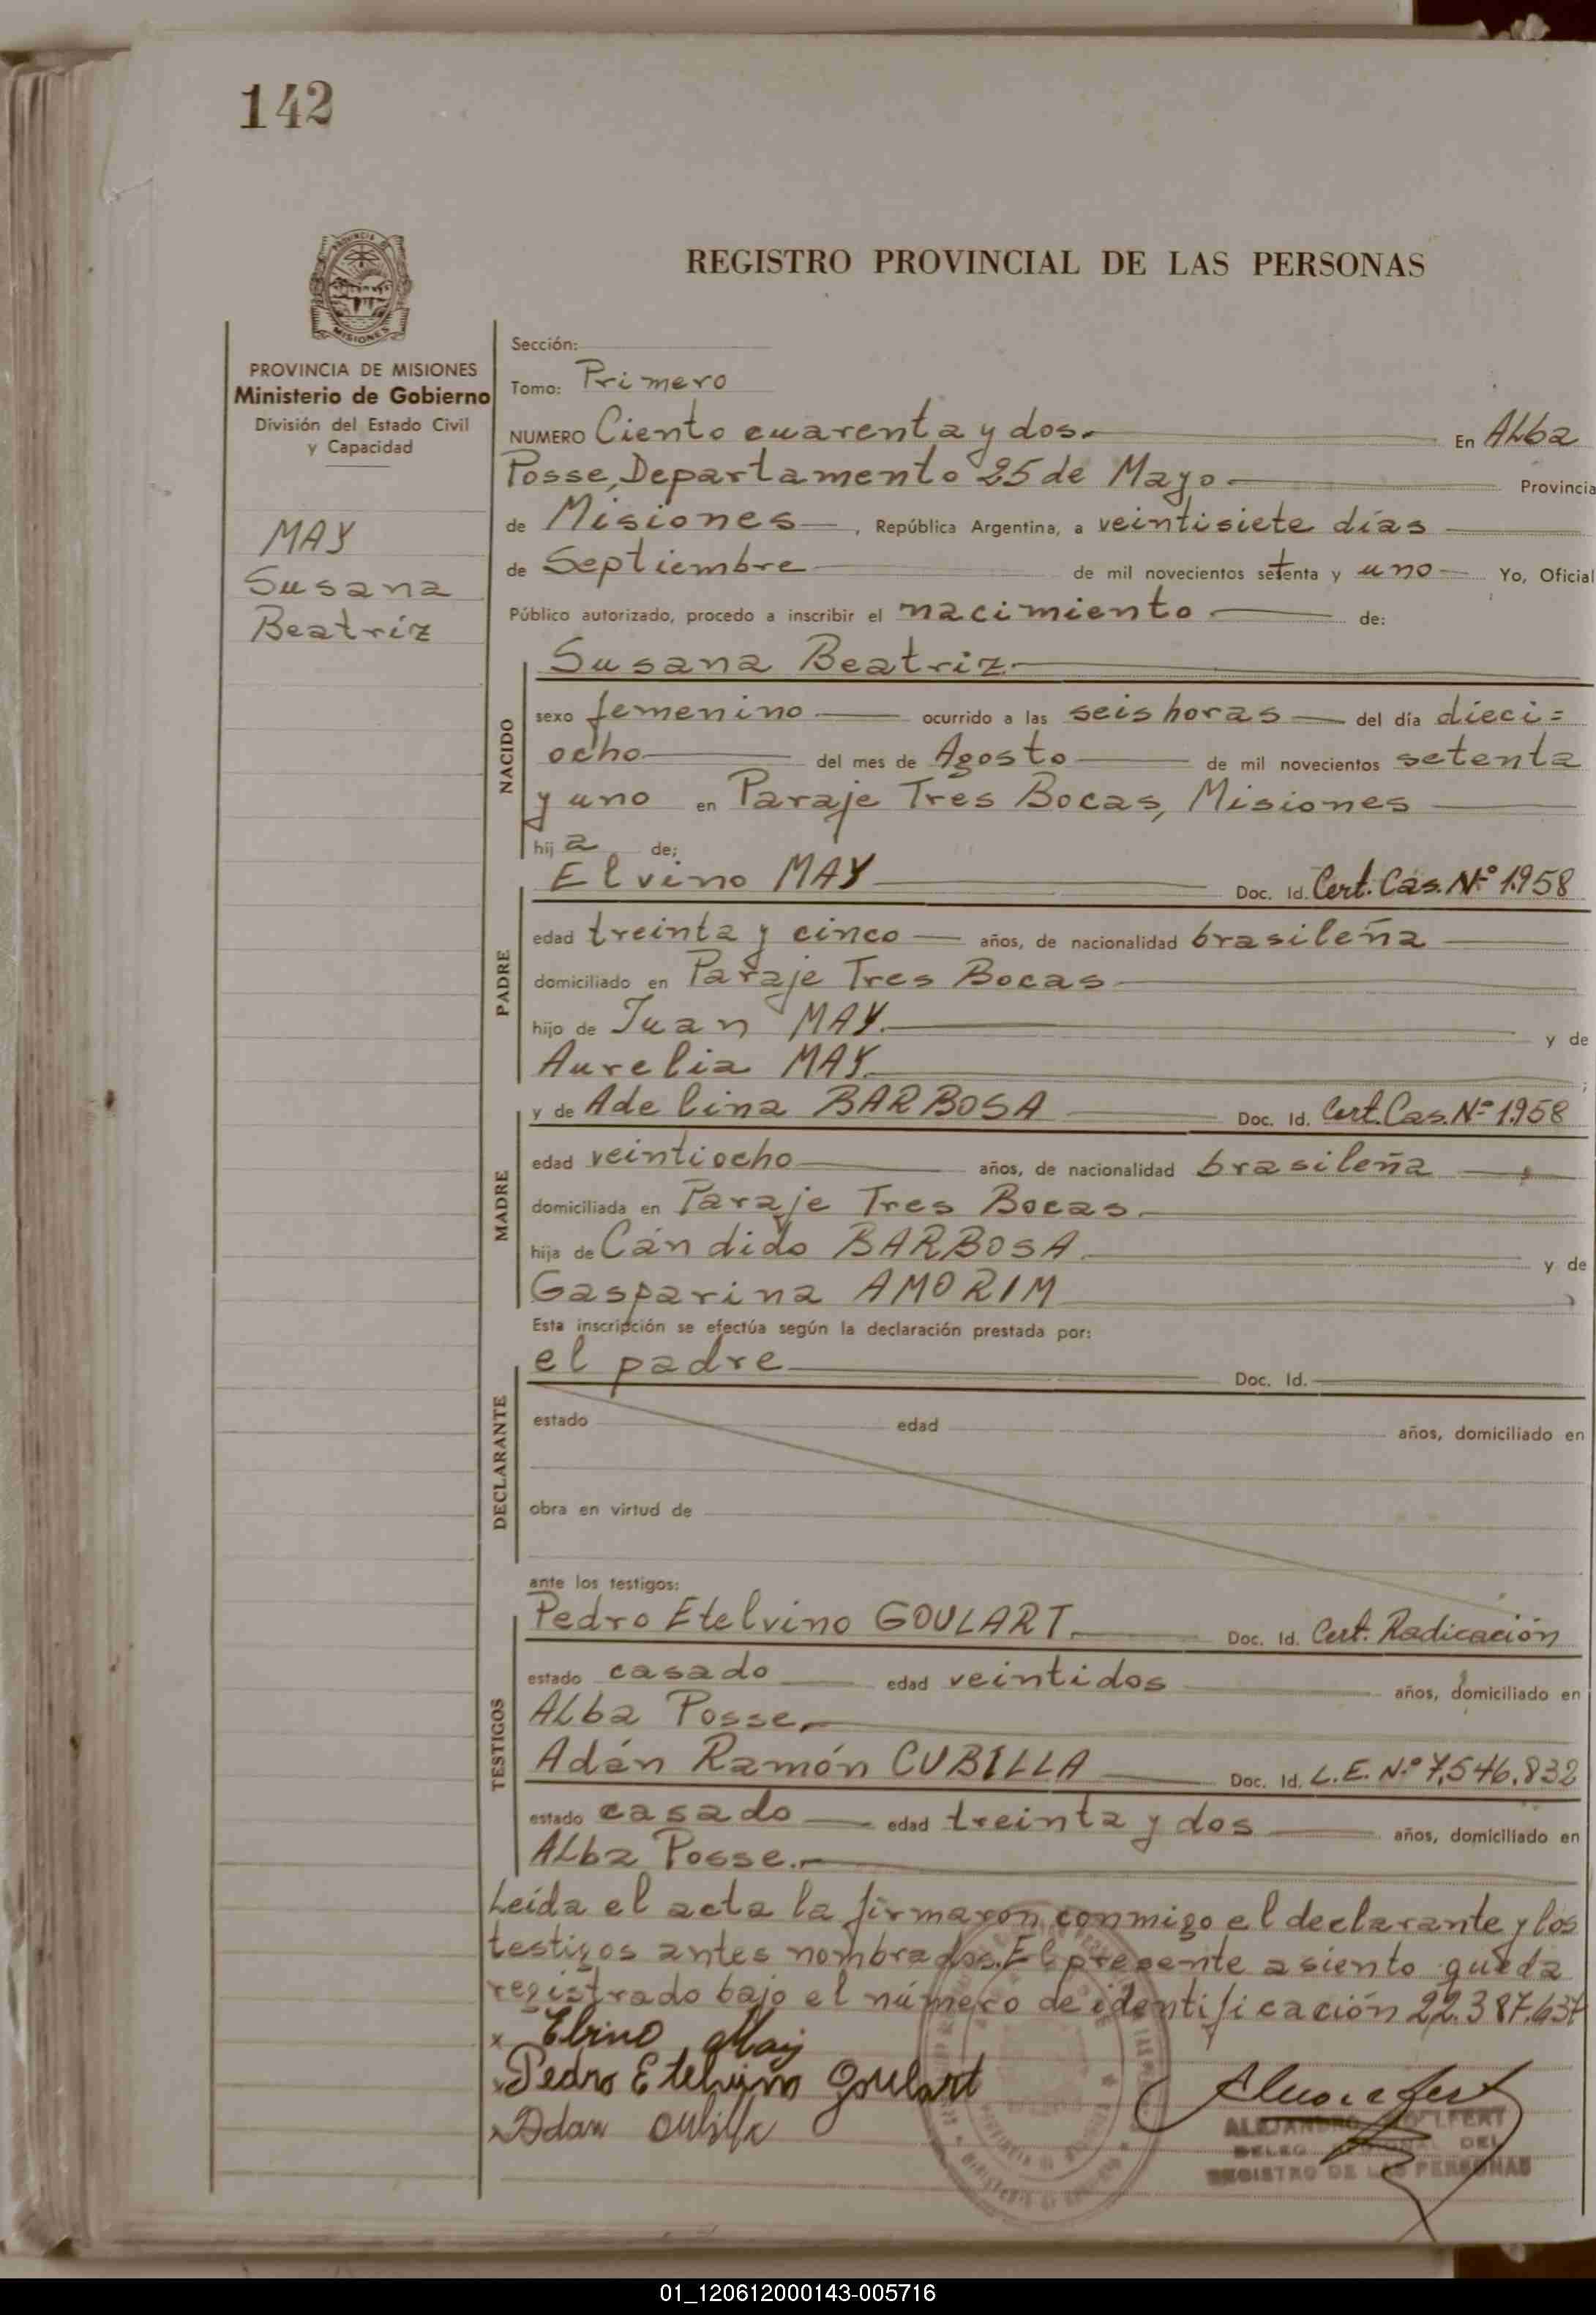 142
REGISTRO PROVINCIAL DE LAS PERSONAS
PROVINCIA DE MISIONES
Ministerio de Gobierno
División del Estado Civil
y Capacidad
MAY
Susana
Beatríz
Sección:
Tomo: Primero
NUMERO Ciento cuarenta y dos. En Alba
Posse, Departamento 25 de Mayo Provincia
de Misiones, República Argentina, a veintisiete días
de Septiembre de mil novecientos setenta y uno Yo, Oficial
Público autorizado, procedo a inscribir el nacimiento de:
NACIDO
Susana Beatriz
sexo femenino ocurrido a las seis horas del día dieci=
ocho del mes de Agosto de mil novecientos setenta
y uno en Paraje Tres Bocas, Misiones
hij a de;
PADRE
Elvino MAY Doc. Id. Cert. Cas. Nº 1.958
edad treinta y cinco años, de nacionalidad brasileña
domiciliado en Paraje Tres Bocas
hijo de Juan MAY. y de
Aurelia MAY. ;
MADRE
y de Adelina BARBOSA Doc. Id. Cert. Cas. Nº 1.958
edad veintiocho años, de nacionalidad brasileña
domiciliada en Paraje Tres Bocas
hija de Cándido BARBOSA y de
Gasparina AMORIM
Esta inscripción se efectúa según la declaración prestada por:
DECLARANTE
el padre Doc. Id.
estado edad años, domiciliado en
obra en virtud de
ante los testigos:
TESTIGOS
Pedro Etelvino GOULART. Doc. Id. Cert. Radicación
estado casado edad veintidos años, domiciliado en
Alba Posse.
Adán Ramón CUBILLA Doc. Id. L.E. Nº 7.546.832
estado casado edad treinta y dos años, domiciliado en
Alba Posse.
Leída el acta la firmaron conmigo el declarante y los
testigos antes nombrados. El presente asiento queda
registrado bajo el número de identificación 22.387.637
x Elvino May
x Pedro Etelvino Goulart
x Adan Cubilla
ALEJANDRO
DEL
REGISTRO DE LAS PERSONAS
01_120612000143-005716